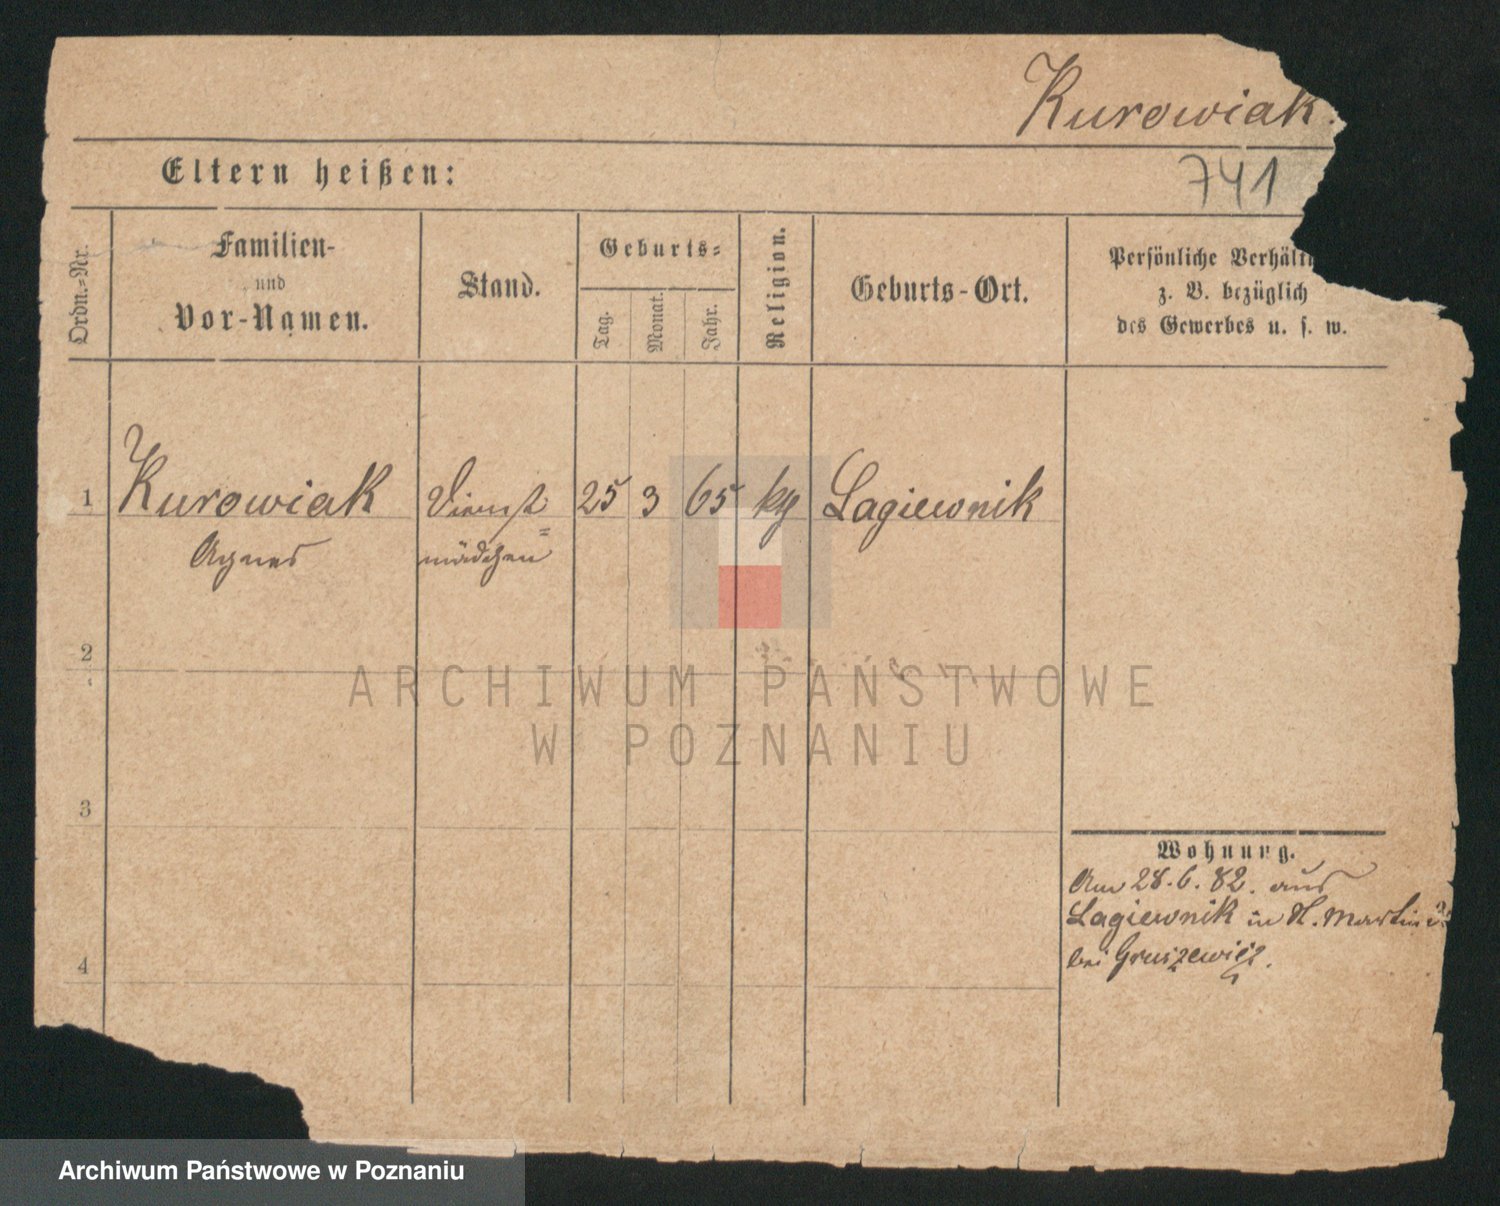 Kurowiak.
741
Eltern heißen:
Ordn.=Nr.
Familien-
und
Vor-Namen.
Stand.
Geburts=
Tag.
Monat.
Jahr.
Religion.
Geburts-Ort.
Persönliche Verhält
z. B. bezüglich
des Gewerbes u. s. w.
1 Kurowiak Dienst= 25 3 65 kg Lagiewnik
Agnes mädchen
2
3
4
Wohnung.
Am 28.6.82. aus
Lagiewnik in St. Martin
bei Gruszewicz.
ARCHIWUM PAŃSTWOWE
W POZNANIU
Archiwum Państwowe w Poznaniu